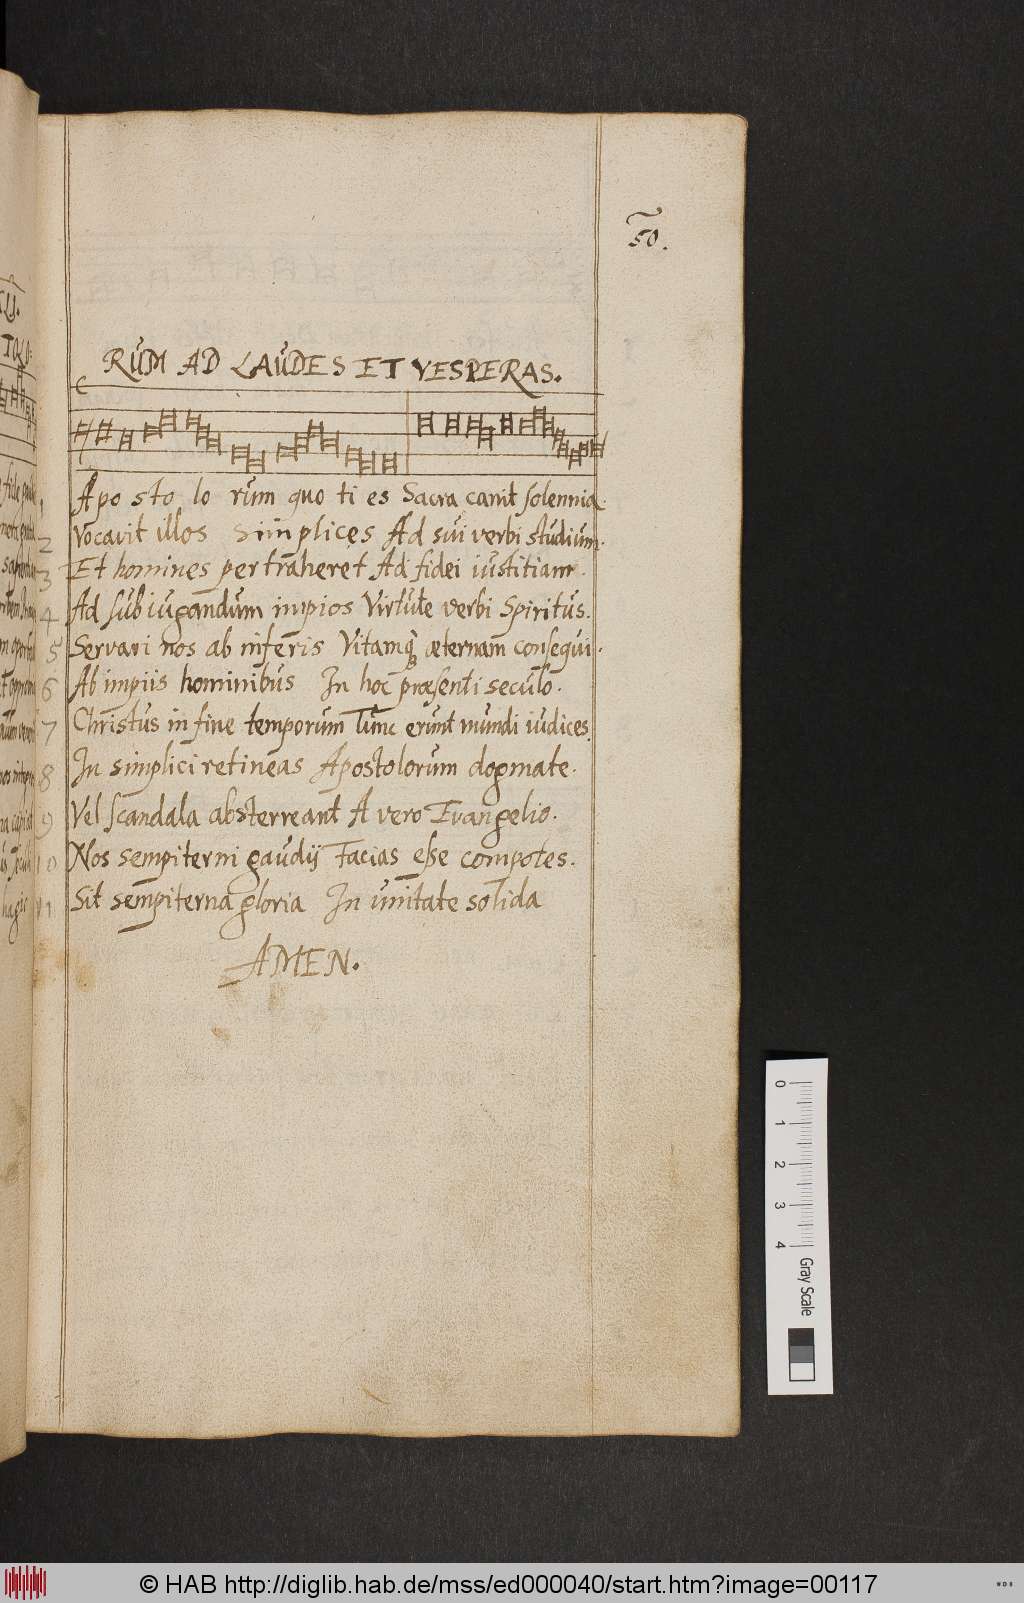 50.
RUM AD LAUDES ET VESPERAS.
Apo sto lo rum quo ti es Sacra canit solennia.
2 Vocavit illos simplices Ad sui verbi studium.
3 Et homines pertraheret Ad fidei iustitiam.
4 Ad subiugandum impios Virtute verbi Spiritus.
5 Servari nos ab inferis Vitamq; æternam consequi.
6 Ab impiis hominibus In hoc præsenti seculo.
7 Christus in fine temporum Tunc erunt mundi iudices.
8 In simplici retineas Apostolorum dogmate.
9 Vel scandala absterreant A vero Evangelio.
10 Nos sempiterni gaudij Facias esse compotes.
11 Sit sempiterna gloria In unitate solida
AMEN.
0 1 2 3 4 Gray Scale
© HAB http://diglib.hab.de/mss/ed000040/start.htm?image=00117